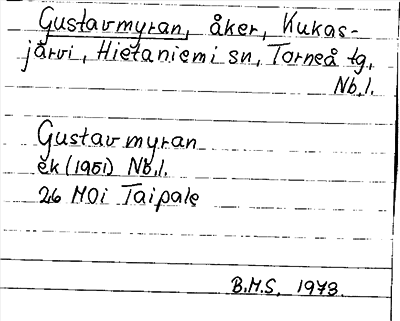 Gustavmyran, åker, Kukas-
järvi, Hietaniemi sn, Torneå tg,
Nb.l.
Gustavmyran
ek (1951) Nb.l.
26 M0i Taipale
B.M.S, 1973.